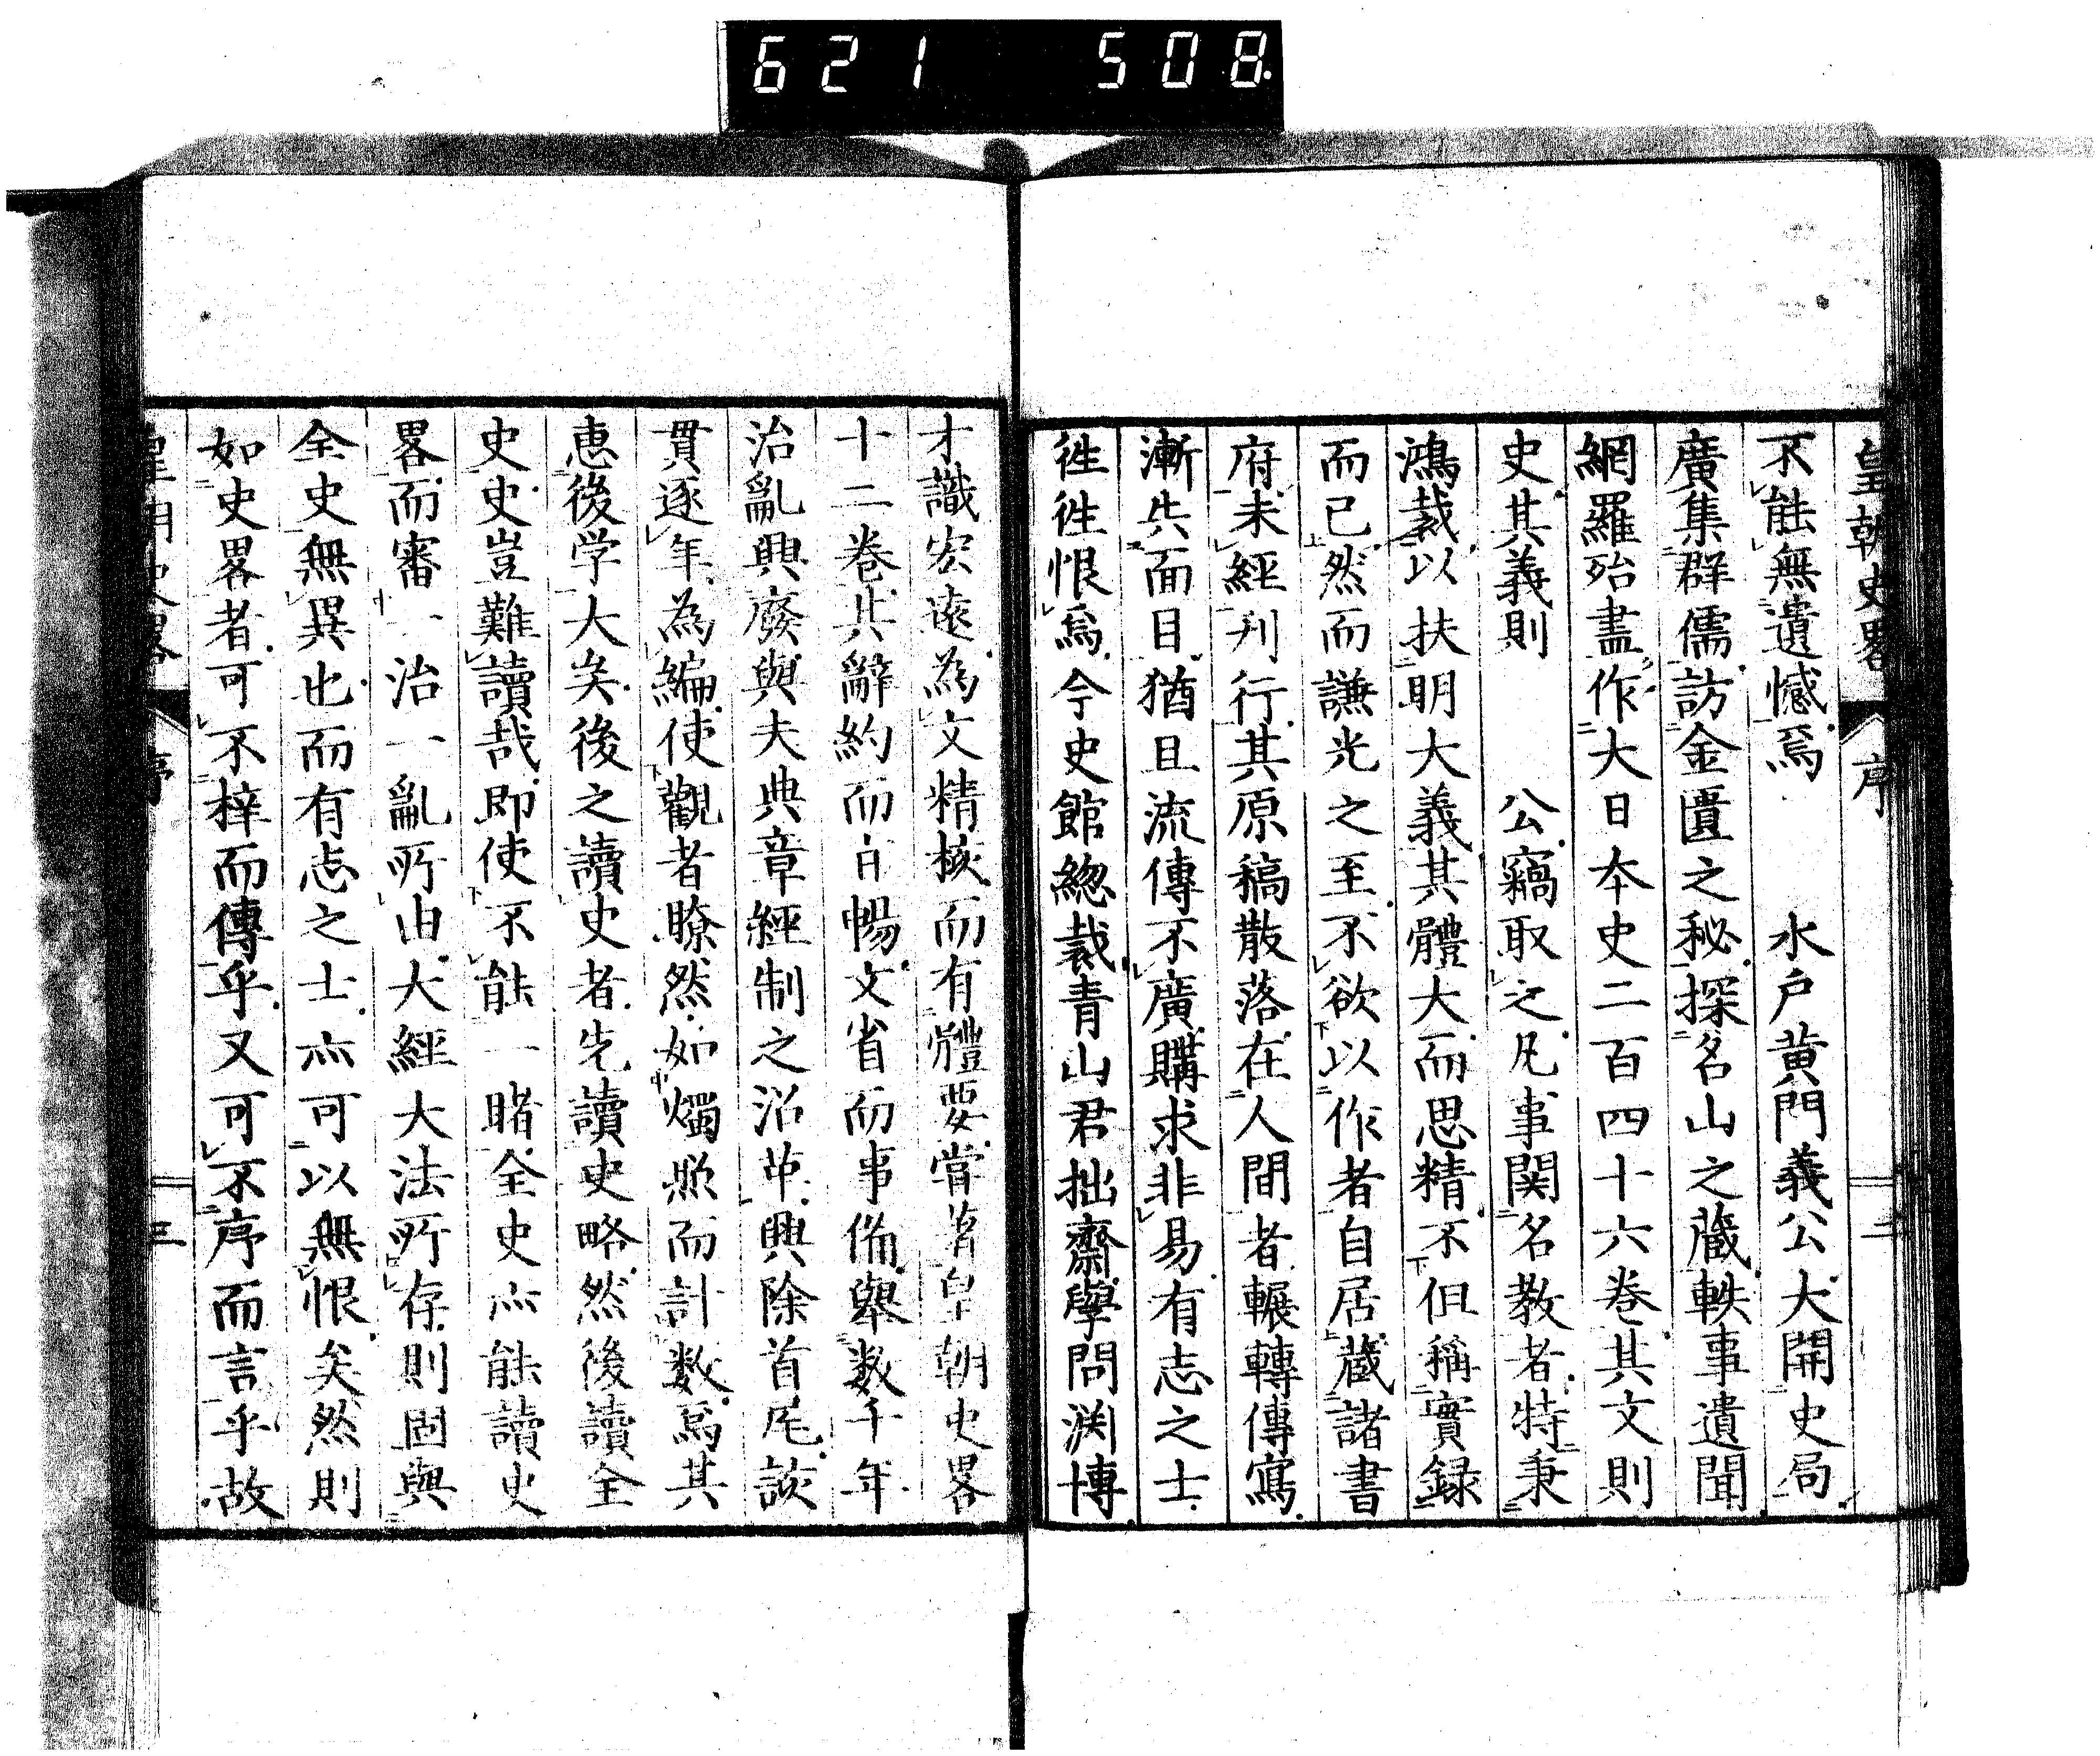 621 508
皇朝史畧 序 二
不能無遺憾焉 水戶黄門義公大開史局
廣集群儒訪金匱之秘探名山之蔵軼事遺聞
網羅殆盡作大日本史二百四十六巻其文則
史其義則 公竊取之凡事関名教者特秉
鴻裁以扶明大義其體大而思精不但稱實録
而已然而謙光之至不欲以作者自居蔵諸書
府未經刋行其原稿散落在人間者輾轉傳寫
漸失面目猶且流傳不廣購求非易有志之士
徃徃恨焉今史館緫裁青山君拙齋學問渕博
才識宏遠為文精核而有體要嘗著皇朝史畧
十二巻其辭約而旨暢文省而事俻舉数千年
治亂興廢與夫典章經制之沿革興除首尾該
貫逐年為編使觀者瞭然如燭照而計数焉其
惠後学大矣後之讀史者先讀史略然後讀全
史史豈難讀哉即使不能一睹全史亦能讀史
畧而審一治一亂所由大經大法所存則固與
全史無異也而有志之士亦可以無恨矣然則
如史畧者可不梓而傳乎又可不序而言乎故
皇朝史畧 序 三